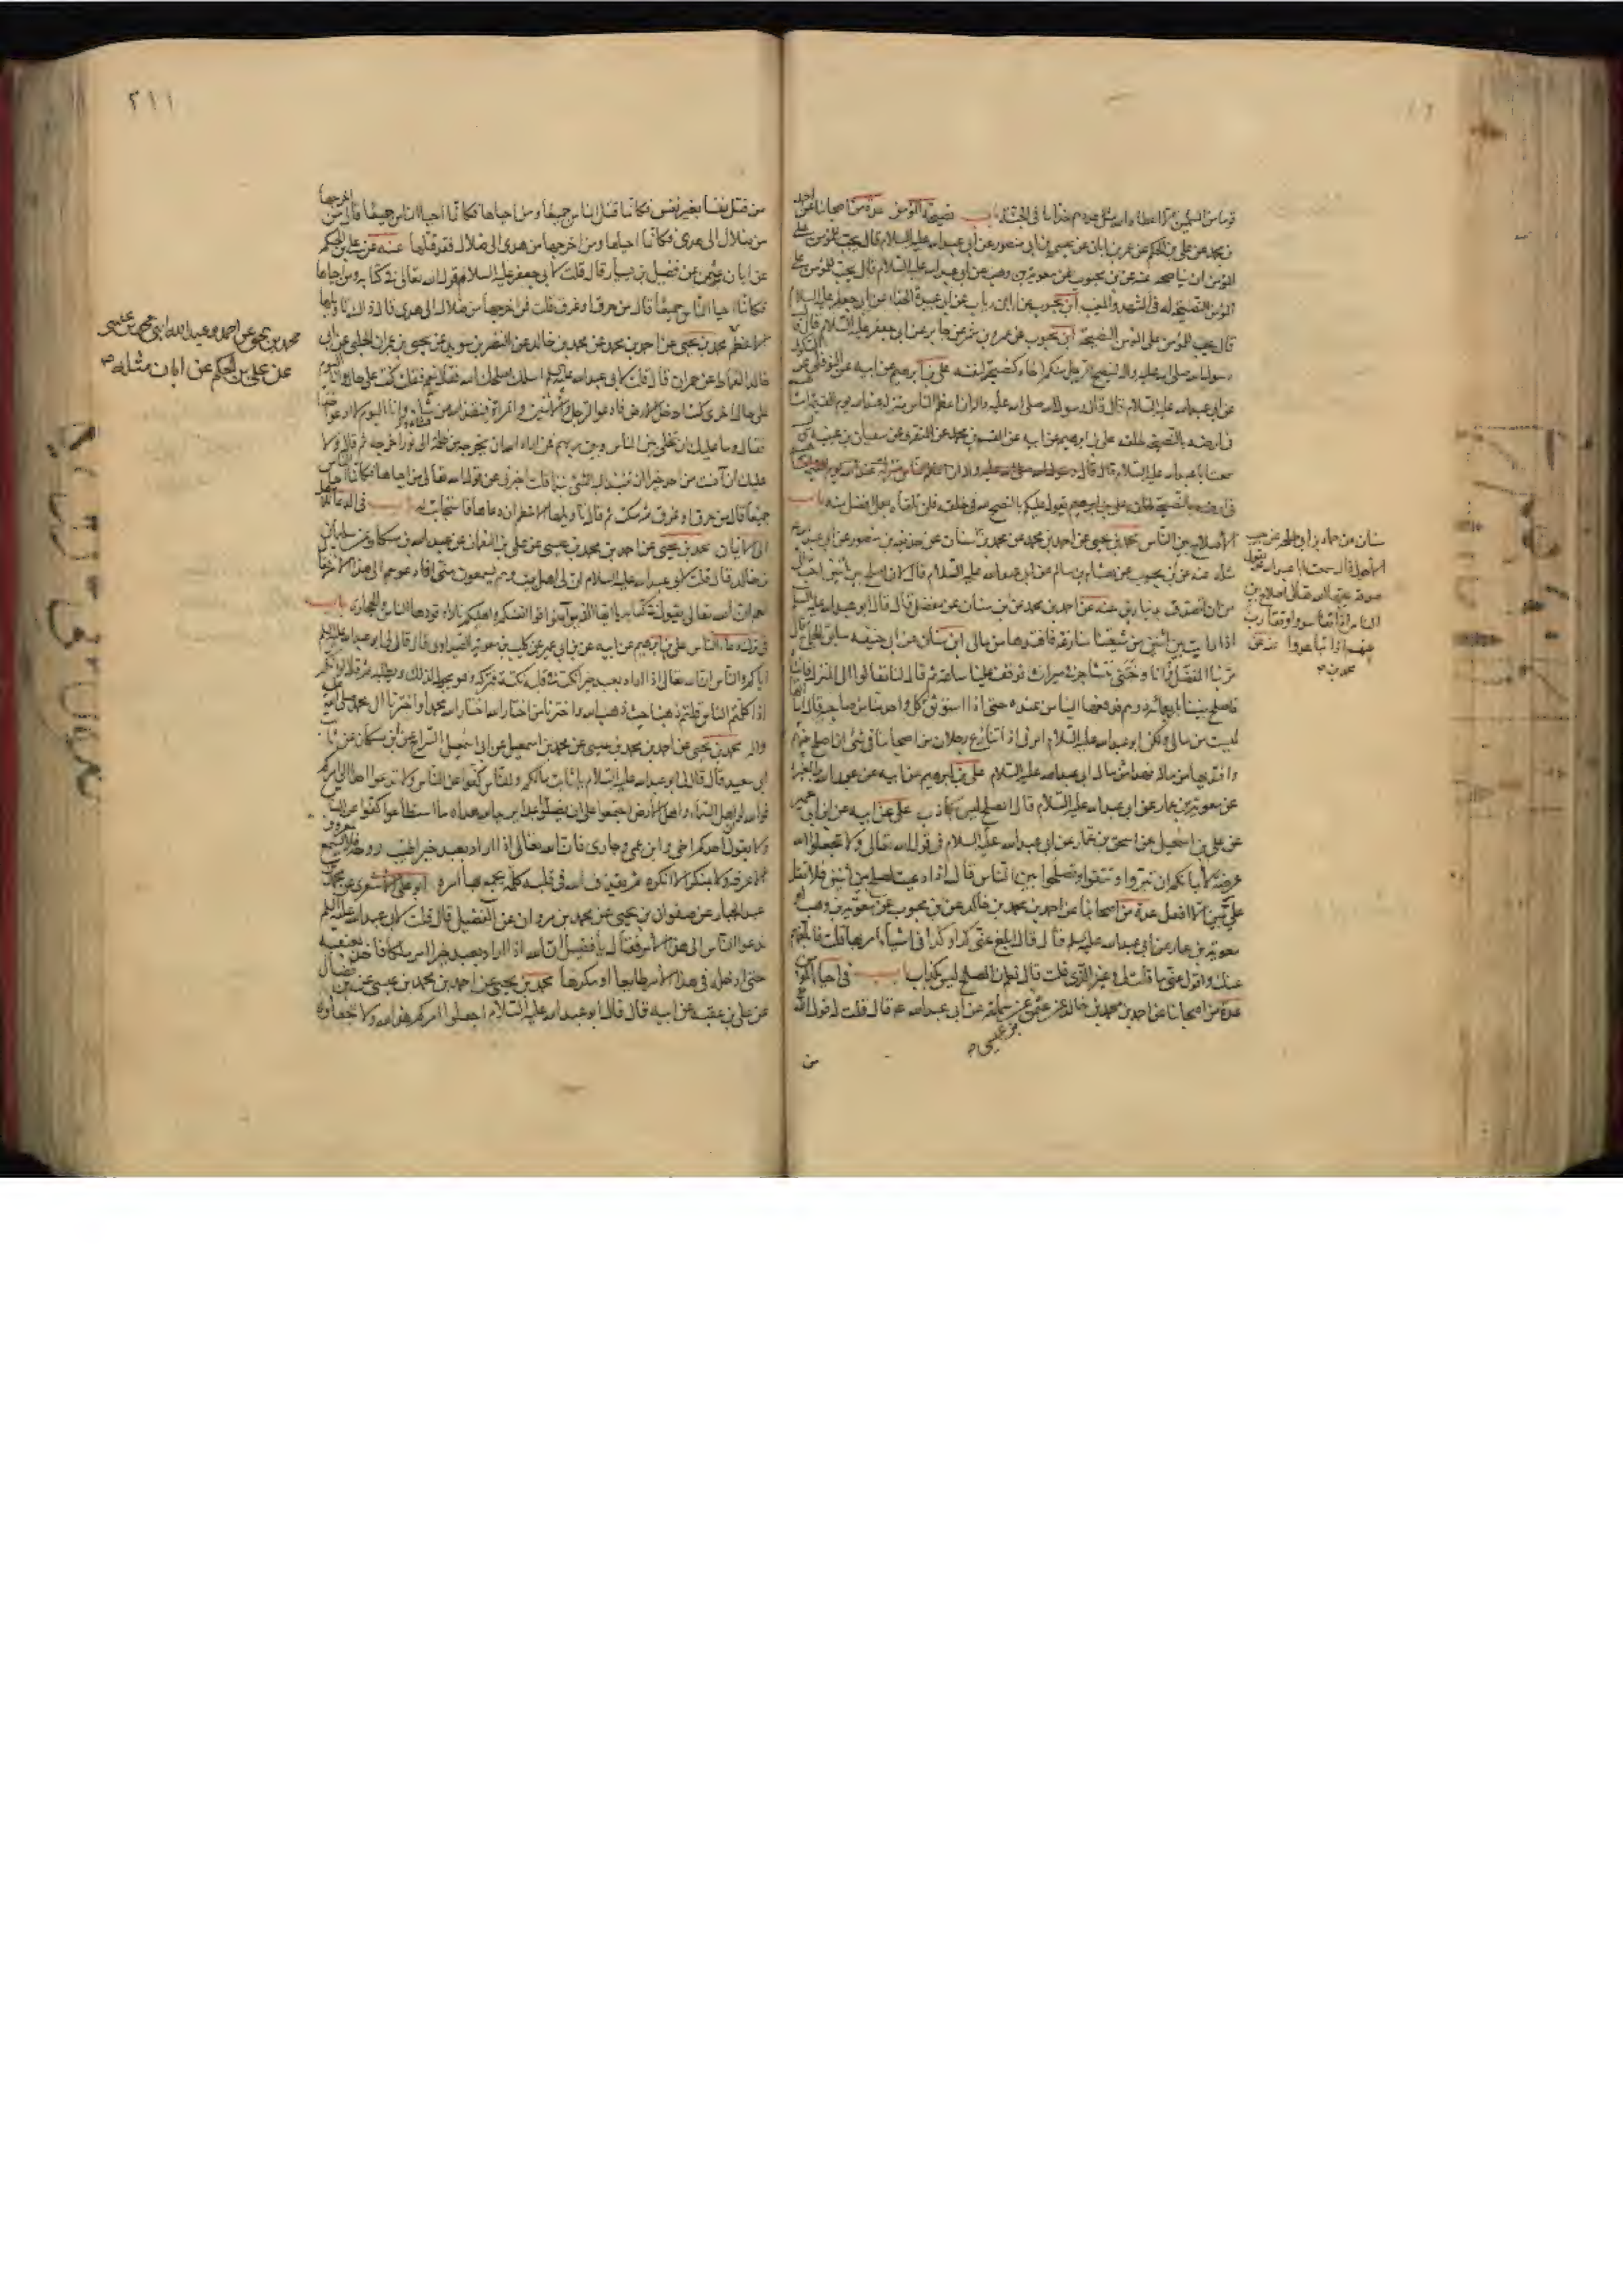 قوما من المسلمين الا اعطاه الله مثل عددهم خداما فى الجنة باب نصيحة المؤمن عدة من اصحابنا عن احمد
بن محمد عن على بن الحكم عن عمر بن ابان عن عيسى بن ابى منصور عن ابى عبدالله عليه السلام قال يجب للمؤمن على
المؤمن ان يناصحه عنه عن بن محبوب عن معوية بن وهب عن ابى عبدالله عليه السلام قال يجب للمؤمن على
المؤمن النصيحة له فى المشهد والمغيب ابن محبوب عن ابن رباب عن ابى عبيدة الحذاء عن ابى جعفر عليه السلام
قال يجب للمؤمن على المؤمن النصيحة ابن محبوب عن عمرو بن شمر عن جابر عن ابى جعفر عليه السلام قال قال
رسول الله صلى الله عليه واله لينصح الرجل منكم اخاه كنصيحته لنفسه على بن ابرهيم عن ابيه عن النوفلى عن السكونى
عن ابى عبدالله عليه السلام قال قال رسول الله صلى الله عليه واله ان اعظم الناس منزلة عند الله يوم القيمة امشاهم
فى ارضه بالنصيحة لخلقه على بن ابرهيم عن ابيه عن القسم بن محمد عن المنقرى عن سفيان بن عيينة قال
سمعت ابا عبدالله عليه السلام
يقول عليكم بالنصح لله فى خلقه فلن تلقاه بعمل افضل منه باب
الاصلاح بين الناس محمد بن يحيى عن احمد بن محمد عن محمد بن سنان عن حذيفة بن منصور عن ابى عبدالله
مثله عنه عن بن محبوب عن هشام بن سالم عن ابى عبدالله عليه السلام قال لان اصلح بين اثنين احب الى
من ان اتصدق بدينارين عنه عن احمد بن محمد عن بن سنان عن مفضل قال قال ابو عبدالله عليه السلم
اذا رايت بين اثنين من شيعتنا منازعة فافتدها من مالى ابن سنان عن ابى حنيفه سابق الحاج قال
مر بنا المفضل وانا وختنى نتشاجر فى ميراث فوقف علينا ساعة ثم قال لنا تعالوا الى المنزل فاتيناه
فاصلح بيننا باربعمائة درهم فدفعها الينا من عنده حتى اذا استوثق كل واحد منا من صاحبه قال اما انها
ليست من مالى ولكن ابو عبدالله عليه السلام امرنى اذا تنازع رجلان من اصحابنا فى شئ ان اصلح بينهما
وافتديها من ماله فهذا من مال ابى عبدالله عليه السلام على بن ابرهيم عن ابيه عن عبدالله بن المغيرة
عن معوية بن عمار عن ابى عبدالله عليه السلام قال المصلح ليس بكاذب على عن ابيه عن ابن ابى عمير
عن على بن اسمعيل عن اسحق بن عمار عن ابى عبدالله عليه السلام فى قول الله تعالى ولا تجعلوا الله
عرضة لايمانكم ان تبروا وتتقوا وتصلحوا بين الناس قال اذا دعيت لصلح بين اثنين فلا تقل
على يمين الا افعل عدة من اصحابنا عن احمد بن محمد بن خالد عن بن محبوب عن معوية بن وهب او
معوية بن عمار عن ابى عبدالله عليه سلم قال قال ابلغ عنى كذا وكذا فى اشياء امر بها قلت فابلغهم
عنك واقول عنى ما قلت لى وغير الذى قلت قال نعم ان المصلح ليس بكذاب باب فى احياء المؤمن
عدة من اصحابنا عن احمد بن محمد بن خالد عن عثمن عن سماعة عن ابى عبدالله عم قال قلت له قول الله
بن عيسى
من
سنان عن حماد بن ابى طلحة عن حبيب
الاحول قال سمعت ابا عبدالله يقول
صدقة يحبها الله تعالى اصلاح بين
الناس اذا تفاسدوا وتقارب
بينهم اذا تباعدوا عنه عن
محمد بن
٢١١
من قتل نفسا بغير نفس فكانما قتل الناس جميعا ومن احياها فكانما احيا الناس جميعا قال من اخرجها
من ضلال الى هدى فكانما احياها ومن اخرجها من هدى الى ضلال فقد قتلها عنه عن على بن الحكم
عن ابان بن عثمن عن فضيل بن يسار قال قلت لابى جعفر عليه السلام قول الله تعالى فى كتابه ومن احياها
فكانما احيا الناس جميعا قال من حرق او غرق قلت فمن اخرجها من ضلال الى هدى قال ذاك تاويلها
الاعظم محمد بن يحيى عن احمد بن محمد عن محمد بن خالد عن النضر بن سويد عن يحيى بن عمران الحلبى عن ابى
خالد القماط عن حمران قال قلت لابى عبدالله عليه السلم اسئلك اصلحك الله فقال نعم فقلت كنت على حال وانا اليوم
على حال اخرى كنت ادخل الارض فادعوا الرجل والاثنين والمراة فينقذ الله من شاء وانا اليوم لا ادعو احدا
فقال وما عليك ان تخلى بين الناس وبين ربهم فمن اراد الله ان يخرجه من ظلمة الى نور اخرجه ثم قال ولا
عليك ان آنست من احد خيرا ان تنبذ اليه الشئ نبذا قلت اخبرنى عن قول الله تعالى ومن احياها فكانما احيا الناس
جميعا قال من حرق او غرق ثم سكت ثم قال تاويلها الاعظم ان دعاها فاستجابت له باب فى الدعاء للاهل
الى الايمان محمد بن يحيى عن احمد بن محمد بن عيسى عن على بن النعمان عن عبدالله بن مسكان عن سليمان
بن خالد قال قلت لابى عبدالله عليه السلام ان لى اهل بيت وهم يسمعون منى افادعوهم الى هذا الامر فقال
نعم ان الله تعالى يقول فى كتابه يا ايها الذين آمنوا قوا انفسكم واهليكم نارا وقودها الناس والحجارة باب
فى ترك دعاء الناس على بن ابرهيم عن ابيه عن بن ابى عمير عن كليب بن معوية الصيداوى قال قال لى ابو عبدالله عليه السلم
اياكم والناس ان الله تعالى اذا اراد بعبد خيرا نكت فى قلبه نكتة فتركه وهو يجول لذلك ويطلبه ثم قال لو انكم
اذا كلمتم الناس قلتم ذهبنا حيث ذهب الله واخترنا من اختار الله اختار الله محمدا واخترنا ال محمد صلى الله عليه
واله محمد بن يحيى عن احمد بن محمد بن عيسى عن محمد بن اسمعيل عن ابى اسمعيل السراج عن بن مسكان عن ثابت
ابى سعيد قال قال لى ابو عبدالله عليه السلام يا ثابت ما لكم وللناس كفوا عن الناس ولا تدعوا احدا الى امركم
فوالله لو ان اهل السماء واهل الارض اجتمعوا على ان يضلوا عبدا يريد الله هداه ما استطاعوا كفوا عن الناس
ولا يقول احدكم اخى وابن عمى وجارى فان الله تعالى اذا اراد بعبد خيرا طيب روحه فلا يسمع بمعروف
الا عرفه ولا بمنكر الا انكره ثم يقذف الله فى قلبه كلمة يجمع بها امره ابو على الاشعرى عن محمد بن
عبد الجبار عن صفوان بن يحيى عن محمد بن مروان عن الفضيل قال قلت لابى عبدالله عليه السلم
ندعوا الناس الى هذا الامر فقال يا فضيل ان الله اذا اراد بعبد خيرا امر ملكا فاخذ بعنقه
حتى ادخله فى هذا الامر طائعا او مكرها محمد بن يحيى عن احمد بن محمد بن عيسى عن بن فضال
عن على بن عقبه عن ابيه قال قال ابو عبدالله عليه السلام اجعلوا امركم هذا لله ولا تجعلوه
محمد بن يحيى عن احمد وعبدالله ابنى محمد بن عيسى
عن على بن الحكم عن ابان مثله